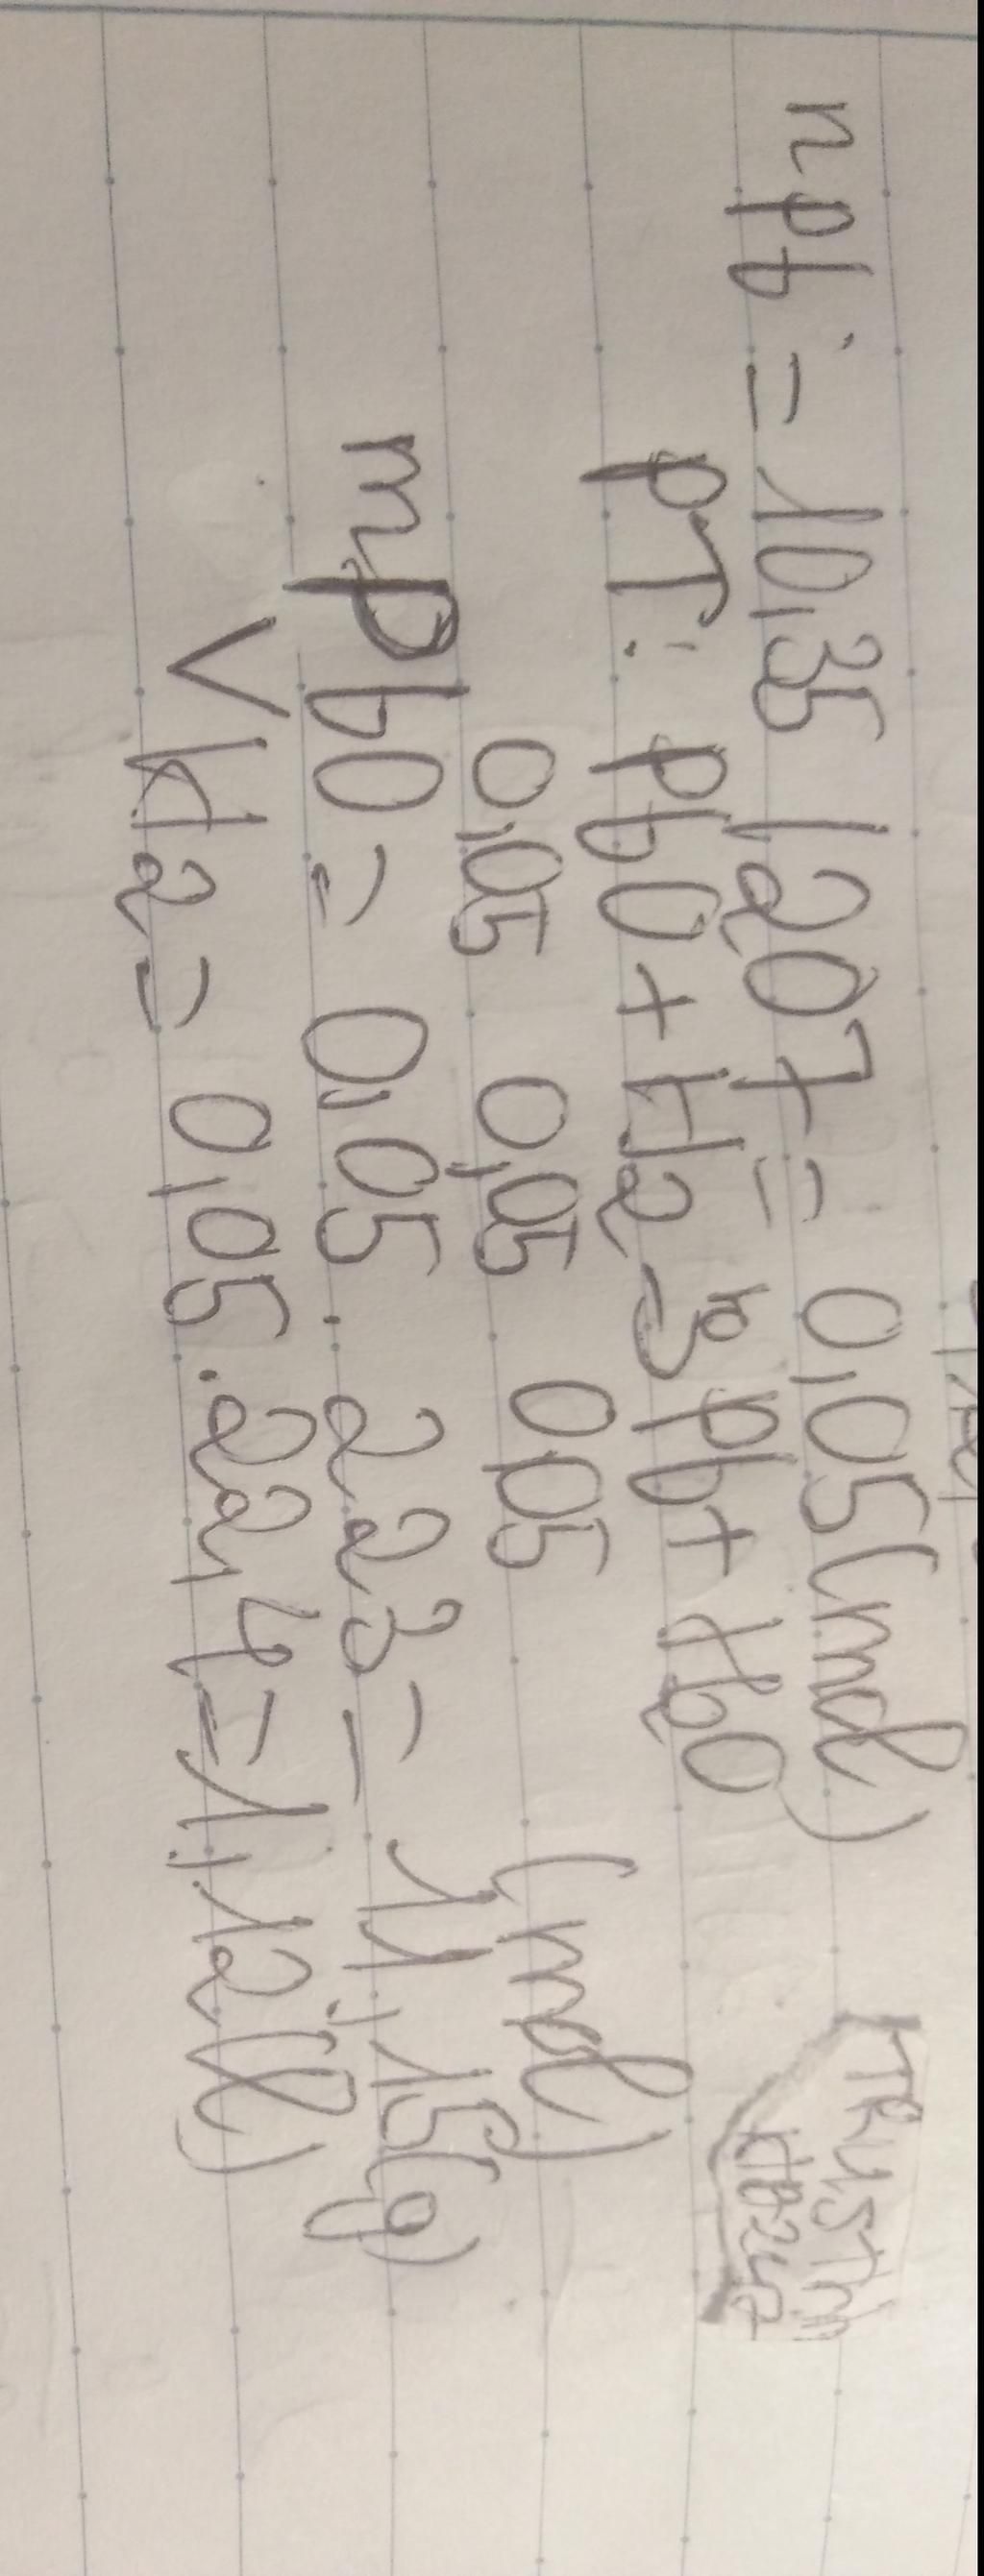 npb = 10,35 / 207 = 0,05 (mol)
pT: pbO + H2 → pb + H2O
0,05 0,05 0,05 (mol)
mPbO = 0,05 . 223 = 11,15(g)
VH2 = 0,05 . 22,4 = 1,12(l)